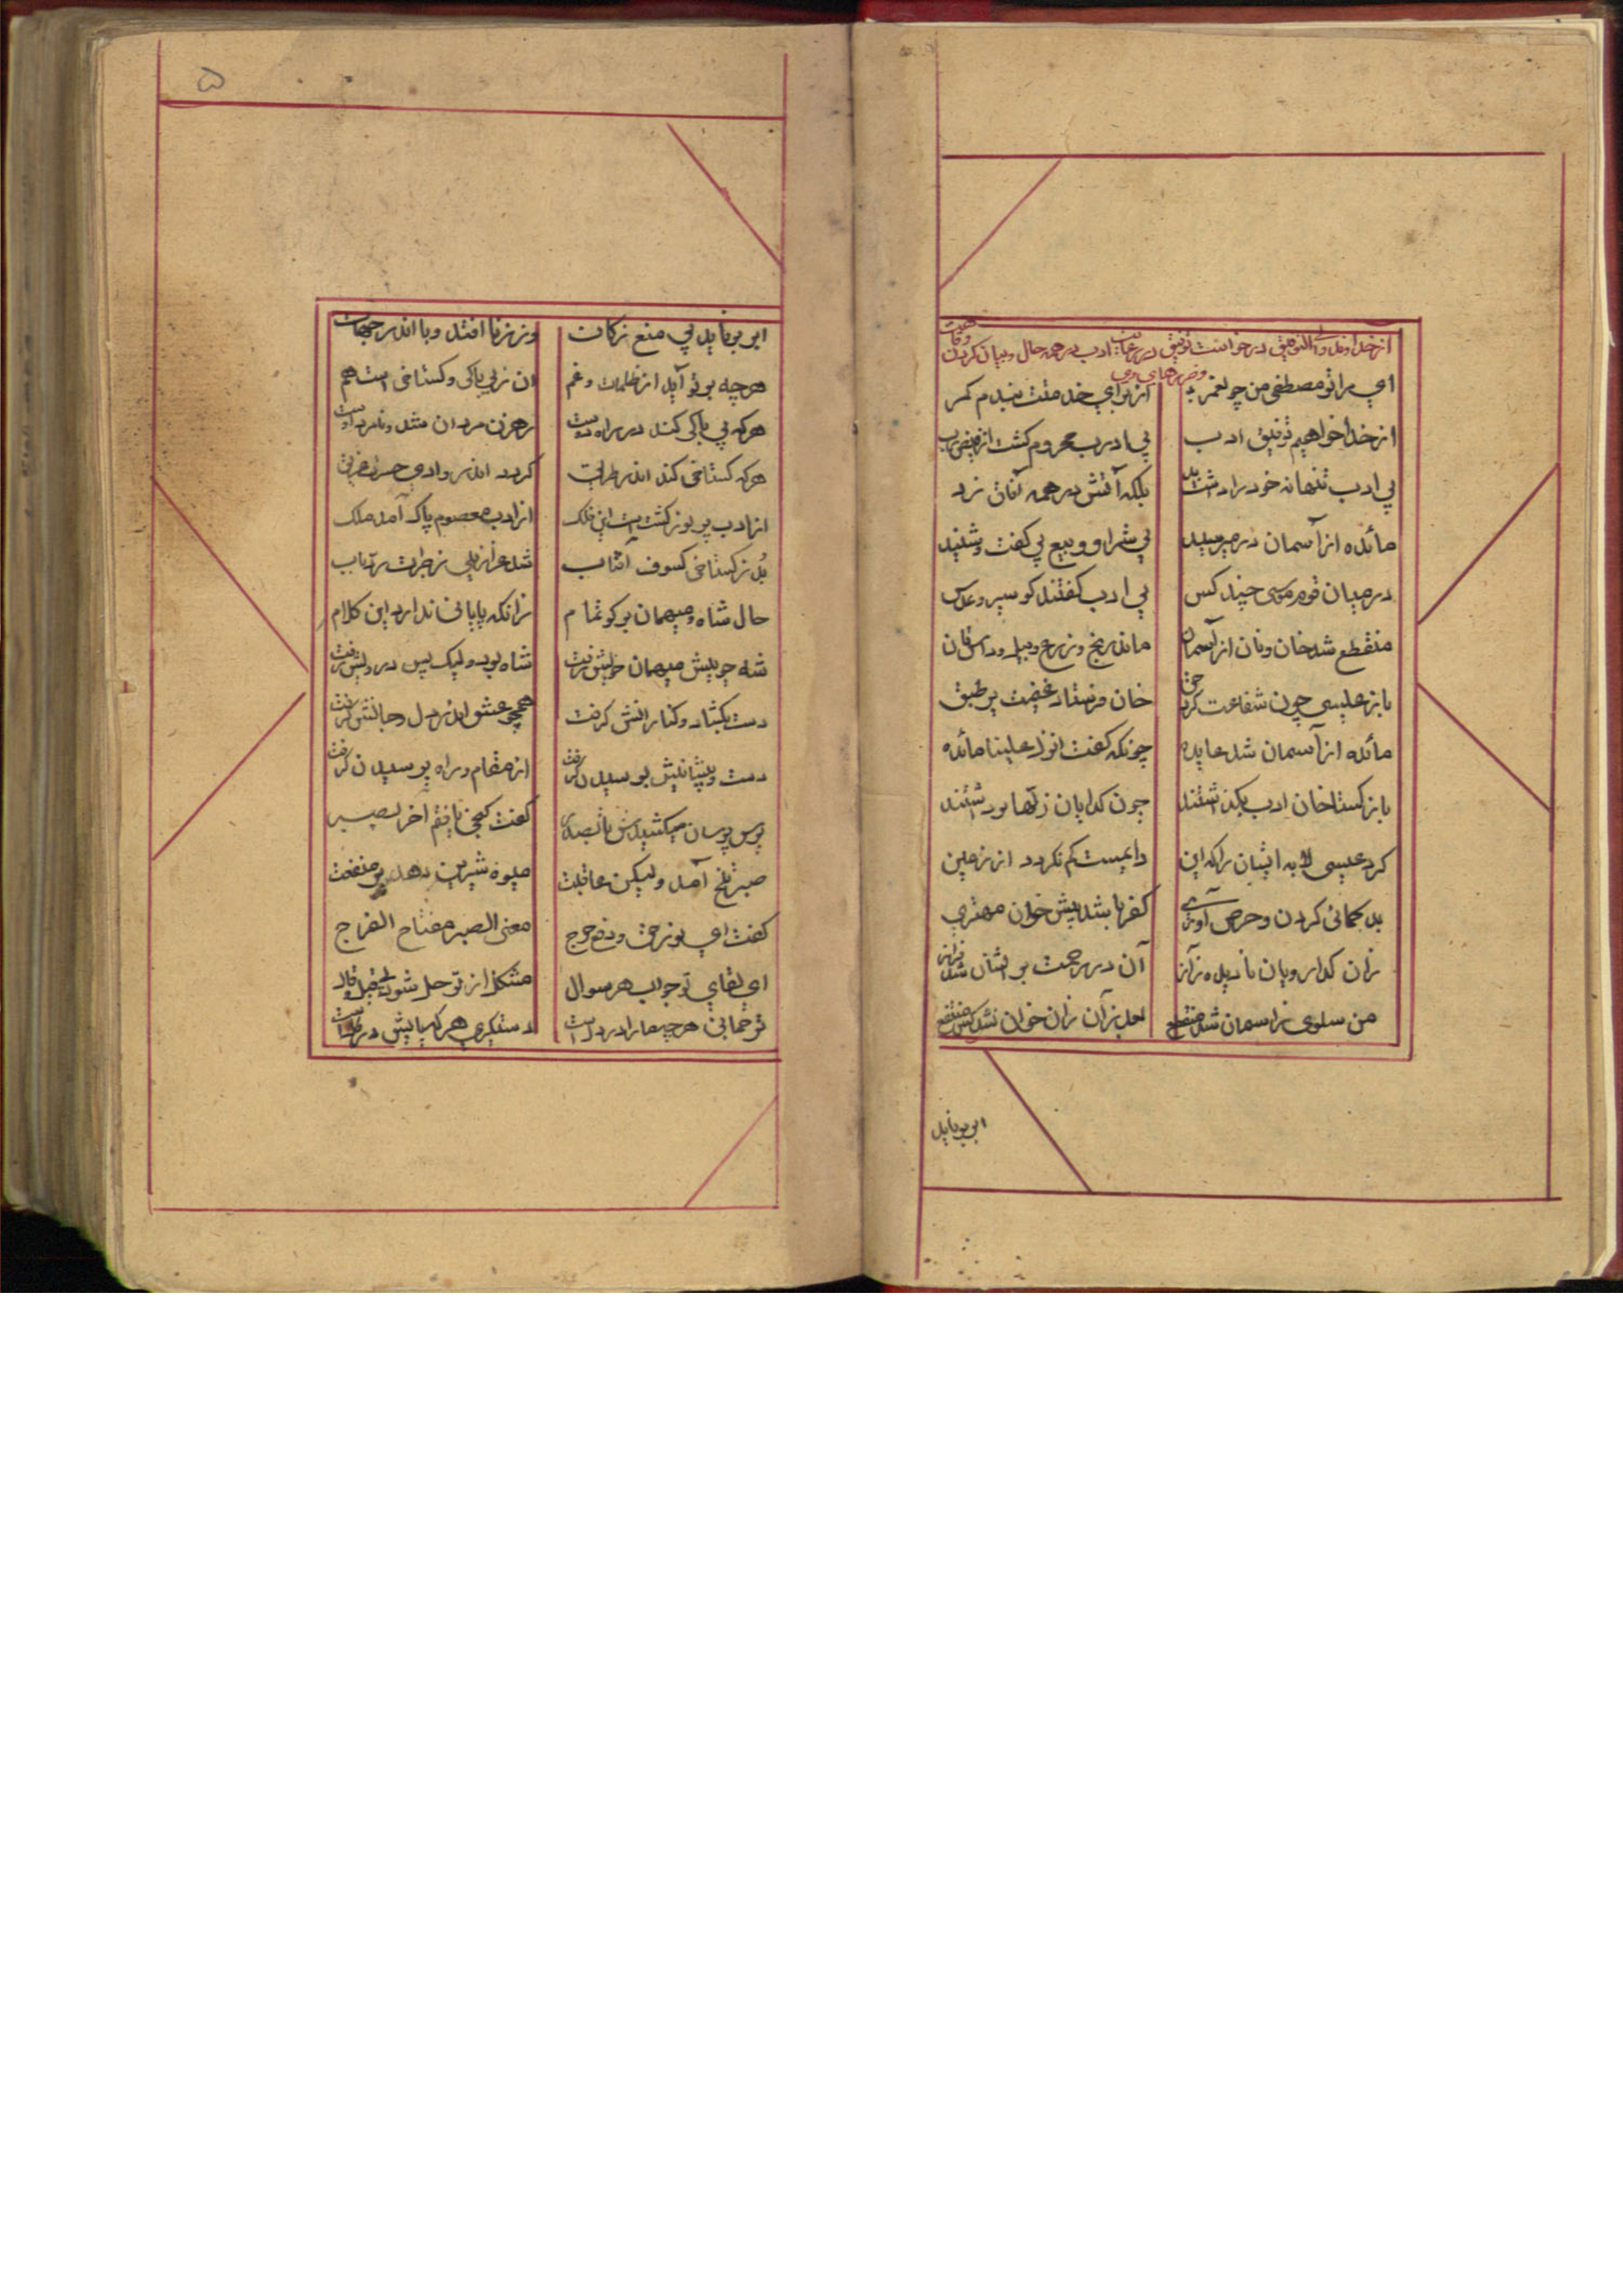 از خداوند ولی التوفیق درخواست توفیق در رعایت ادب در همه حال و بیان کردن وخامت
و ضررهای بی
ای مرا تو مصطفی من چو عمر از برای خدمتت بندم کمر
از خدا خواهیم توفیق ادب بی ادب محروم گشت از فیض رب
بی ادب تنها نه خود را داشت بد بلکه آتش در همه آفاق زد
مائده از آسمان در میرسید بی شرا و و بیع بی گفت و شنید
در میان قوم موسی چند کس بی ادب گفتند کو سیر و عدس
منقطع شد خان و نان از آسمان ماند رنج و زرع و بیل و داس مان
باز عیسی چون شفاعت کرد حق خان فرستاد غنیمت بر طبق
مائده از آسمان شد عایده چونکه گفت انزل علینا مائده
باز گستاخان ادب بگذاشتند چون گدایان زلها برداشتند
کرد عیسی لابه ایشان را که این دایمست کم نگردد از زمین
بد گمانی کردن و حرص آوری کفر باشد پیش خوان مهتری
زان گدا رویان نادیده ز آز آن در رحمت بر ایشان شد فراز
من سلوی ز اسمان شد منقطع بعد از آن زان خوان نشد کس منتفع
ابر برناید
۵
ابر برناید پی منع زکات وز زنا افتد وبا اندر جهات
هرچه بر تو آید از ظلمات و غم ان ز بی باکی و گستاخی است هم
هرکه بی باکی کند در راه دوست رهزن مردان شد و نامرد اوست
هرکه گستاخی کند اندر طریق گردد اندر وادی حسرت غریق
از ادب پر نور گشت است این فلک از ادب معصوم پاک آمد ملک
بد ز گستاخی کسوف آفتاب شد عزازیلی ز جرات رد باب
حال شاه و میهمان بر گو تمام زانکه پایانی ندارد این کلام
شه چو پیش میهمان خویش رفت شاه بود ولیک بس درویش رفت
دست بگشاد و کنارانش گرفت همچو عشق اندر دل و جانش گرفت
دست و پیشانیش بوسیدن گرفت از مقام و راه پرسیدن گرفت
پرس پرسان میکشیدش تا بصدر گفت گنجی یافتم آخر بصبر
صبر تلخ آمد ولیکن عاقبت میوه شیرین دهد پر منفعت
گفت ای نور حق و دفع حرج معنی الصبر مفتاح الفرج
ای لقای تو جواب هر سوال مشکل از تو حل شود بی قیل و قال
ترجمانی هرچه ما را در دلست دستگیری هرکه پایش در گلست